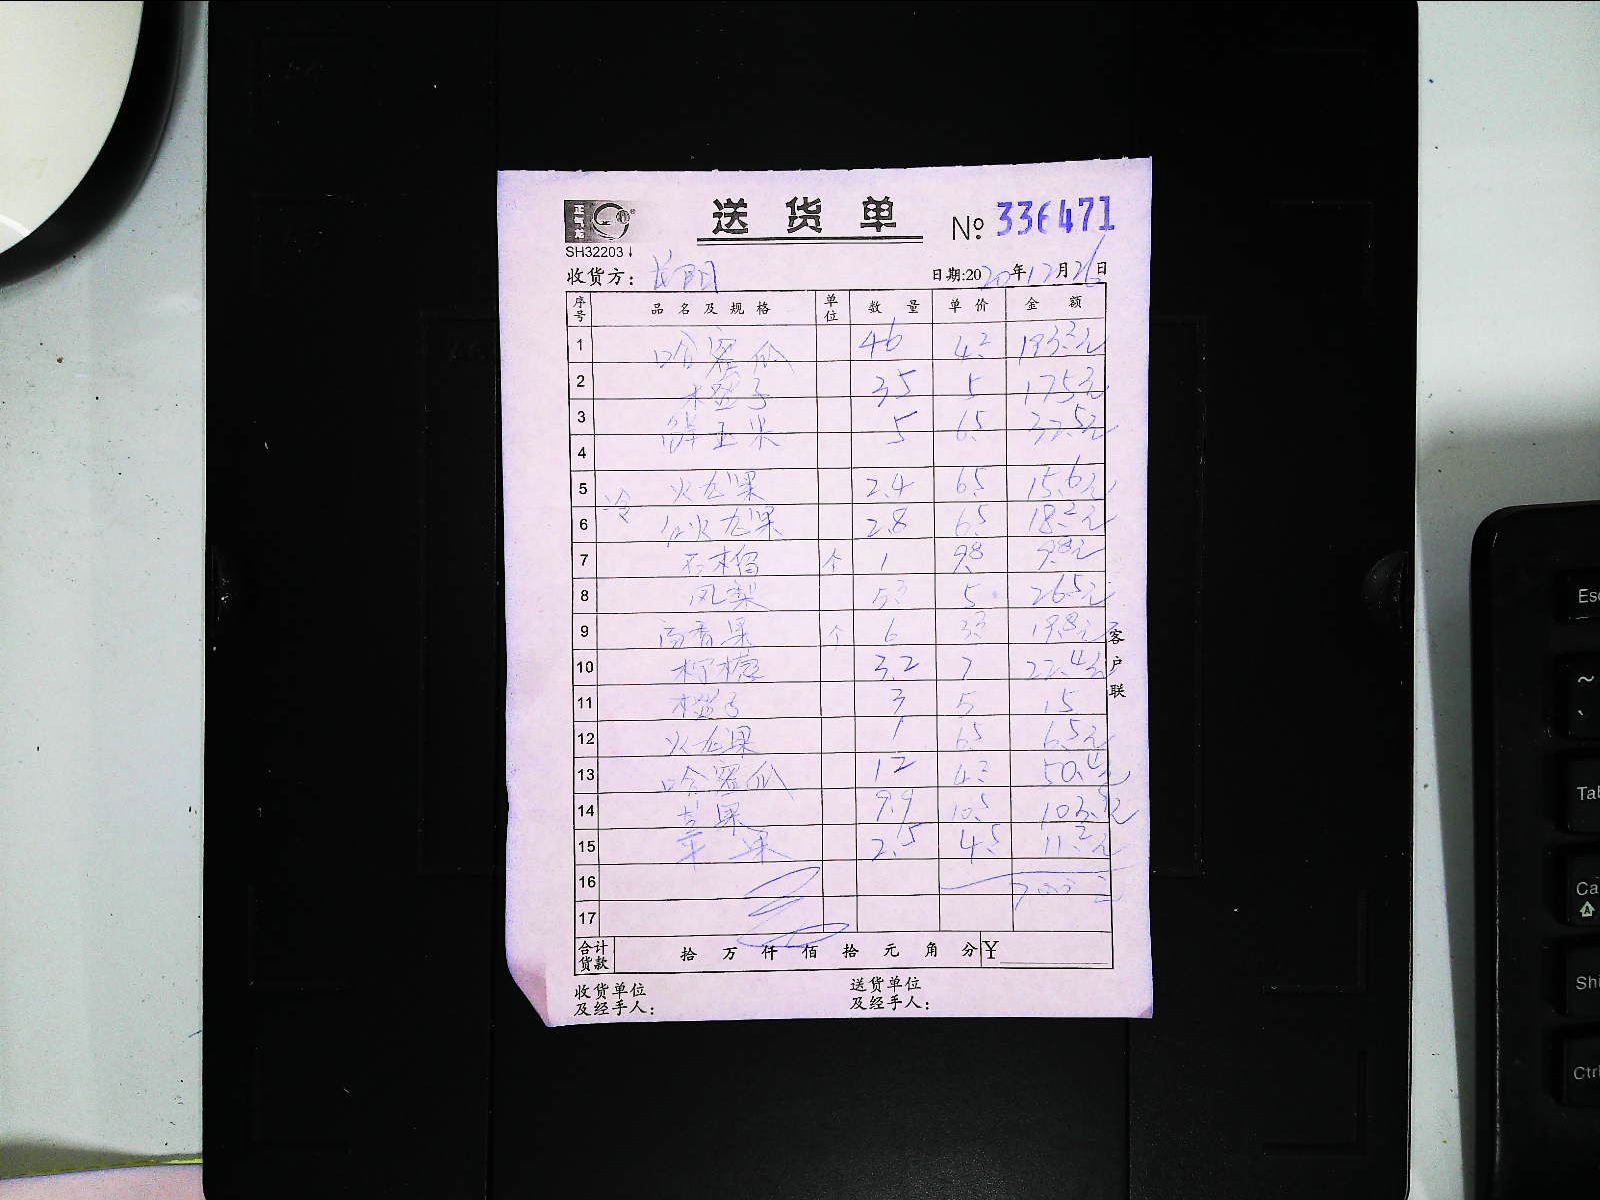 正气龙
送 货 单
№ 336471
SH32203↓
收货方：
日期:2020年12月26日
序号 品名及规格 单位 数量 单价 金额
1 哈密瓜 46 4.2 193.2元
2 橙子 35 5 175元
3 鲜玉米 5 6.5 32.5元
4
5 火龙果 2.4 6.5 15.6元
冷
6 红火龙果 2.8 6.5 18.2元
7 石榴 个 1 9.8 9.8元
8 凤梨 5.3 5 26.5元
9 百香果 个 6 3.3 19.8元
10 柠檬 3.2 7 22.4元
11 橙子 3 5 15
12 火龙果 1 6.5 6.5元
13 哈密瓜 12 4.2 50.4元
14 苹果 9.9 10.5 103.9元
15 苹果 2.5 4.5 11.2元
16
17
合计货款 拾 万 仟 佰 拾 元 角 分 ¥
收货单位及经手人：
送货单位及经手人：
客户联
Esc
~
、
Tab
Ca
Shi
Ctrl